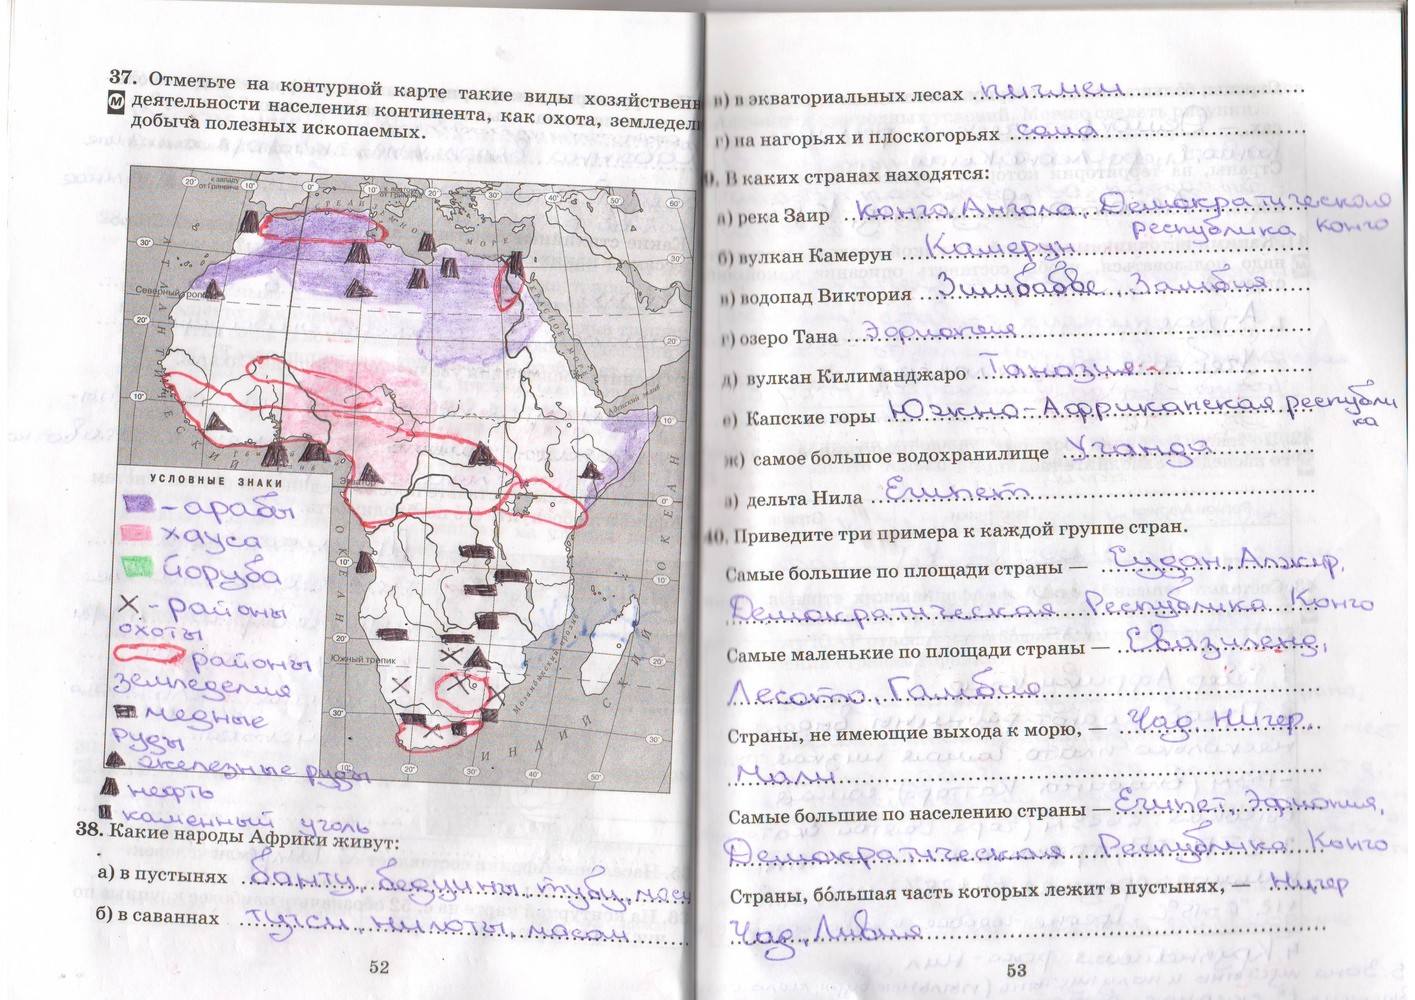 37. Отметьте на контурной карте такие виды хозяйственн
М деятельности населения континента, как охота, земледел
добыча полезных ископаемых.
к западу от Гринвича
Северный тропик
КРАСНОЕ МОРЕ
Аденский залив
Экватор
Южный тропик
Мозамбикский пролив
АТЛАНТИЧЕСКИЙ ОКЕАН
ИНДИЙСКИЙ ОКЕАН
УСЛОВНЫЕ ЗНАКИ
- арабы
хауса
йоруба
- районы
охоты
районы
земледелия
медные
руды
железные руды
нефть
каменный уголь
38. Какие народы Африки живут:
а) в пустынях банту, бедуины, тубу,
б) в саваннах тутси, нилоты, масаи
52
в) в экваториальных лесах пигмеи
г) на нагорьях и плоскогорьях
9. В каких странах находятся:
а) река Заир Конго, Ангола, Демократическая
республика Конго
б) вулкан Камерун Камерун
в) водопад Виктория Зимбабве, Замбия
г) озеро Тана Эфиопия
д) вулкан Килиманджаро Таназия
е) Капские горы Южно-Африканская республи
ка
ж) самое большое водохранилище Уганда
з) дельта Нила Египет
40. Приведите три примера к каждой группе стран.
Самые большие по площади страны — Судан, Алжир,
Демократическая Республика Конго
Самые маленькие по площади страны — Свазиленд,
Лесото, Гамбия
Страны, не имеющие выхода к морю, — Чад, Нигер,
Мали
Самые большие по населению страны — Египет, Эфиопия,
Демократическая Республика Конго
Страны, бо́льшая часть которых лежит в пустынях, — Нигер
Чад, Ливия
53